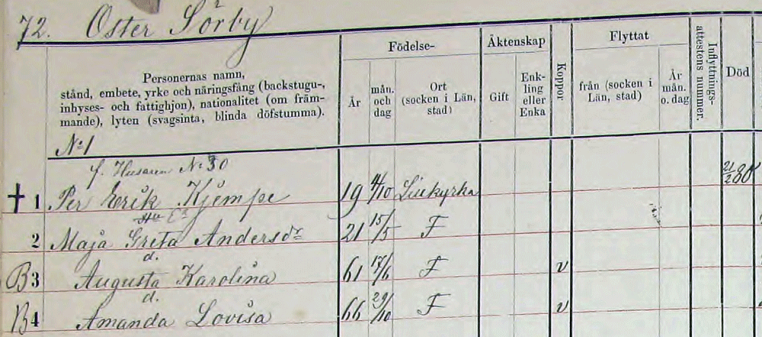 72. Öster Sörby
Personernas namn,
stånd, embete, yrke och näringsfång (backstugu-,
inhyses- och fattighjon), nationalitet (om främ-
mande), lyten (svagsinta, blinda döfstumma).
Födelse-
År
mån. och dag
Ort
(socken i Län, stad)
Äktenskap
Gift
Enk-
ling
eller
Enka
Koppor
Flyttat
från (socken i
Län, stad)
År
mån.
o. dag
Inflyttnings-
attestens nummer.
Död
No 1
f. Husaren No 30
1 Per Erik Kjempe 19 4/10 Lillkyrka 21/2 80
2 Maja Greta Andersdr 21 15/5 F
d.
B 3 Augusta Karolina 61 17/6 F v
d.
B 4 Amanda Lovisa 66 29/10 F v